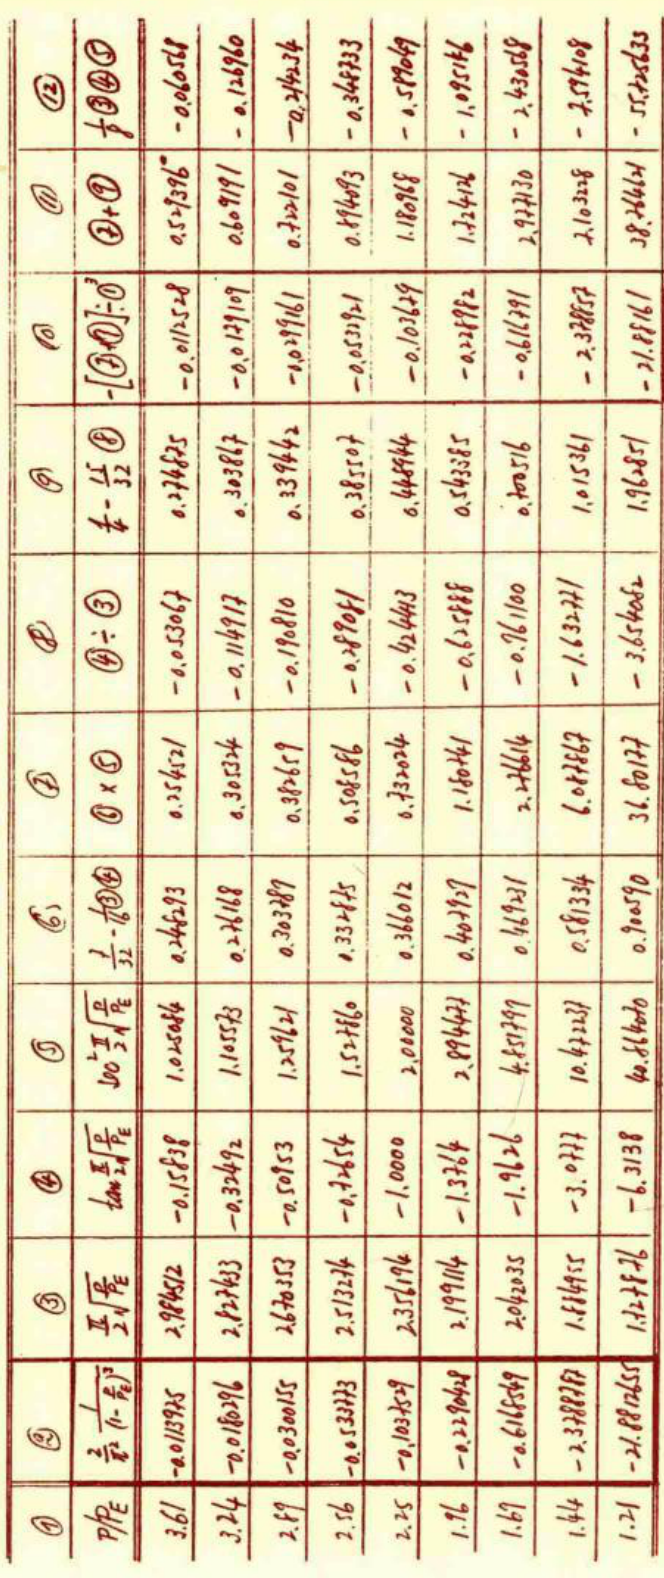 ① ② ③ ④ ⑤ ⑥ ⑦ ⑧ ⑨ ⑩ ⑪ ⑫
P/PE 2/π² 1/(1-P/PE)³ π/2√P/PE tan π/2√P/PE sec² π/2√P/PE ⑥×⑤ ④÷③ ②+⑨
3.61 -0.0113975 2.984512 -0.15838 1.025084 0.248293 0.254521 -0.053067 0.274875 -0.0112528 0.529396 -0.060568
3.24 -0.0180296 2.827433 -0.32492 1.105573 0.276168 0.305324 -0.114917 0.303867 -0.0179109 0.609191 -0.126960
2.89 -0.0300155 2.670353 -0.50953 1.259621 0.303789 0.382659 -0.190810 0.339442 -0.0299161 0.722101 -0.214234
2.56 -0.0533773 2.513274 -0.72654 1.527860 0.332875 0.508586 -0.289081 0.385507 -0.0532921 0.894093 -0.348733
2.25 -0.1037529 2.356194 -1.0000 2.00000 0.366012 0.732024 -0.424413 0.448944 -0.103679 1.180968 -0.589049
1.96 -0.2290428 2.199114 -1.3764 2.894477 0.407929 1.180741 -0.625888 0.543385 -0.228982 1.724126 -1.095146
1.69 -0.6168549 2.042035 -1.9626 4.851799 0.469231 2.276614 -0.961100 0.700516 -0.616791 2.977130 -2.430568
1.44 -2.3788787 1.884955 -3.0777 10.472237 0.581334 6.087867 -1.632771 1.015361 -2.378857 7.103228 -7.594108
1.21 -21.8812655 1.727876 -6.3138 40.864070 0.900590 36.80177 -3.654082 1.962851 -21.88161 38.764621 -55.725633